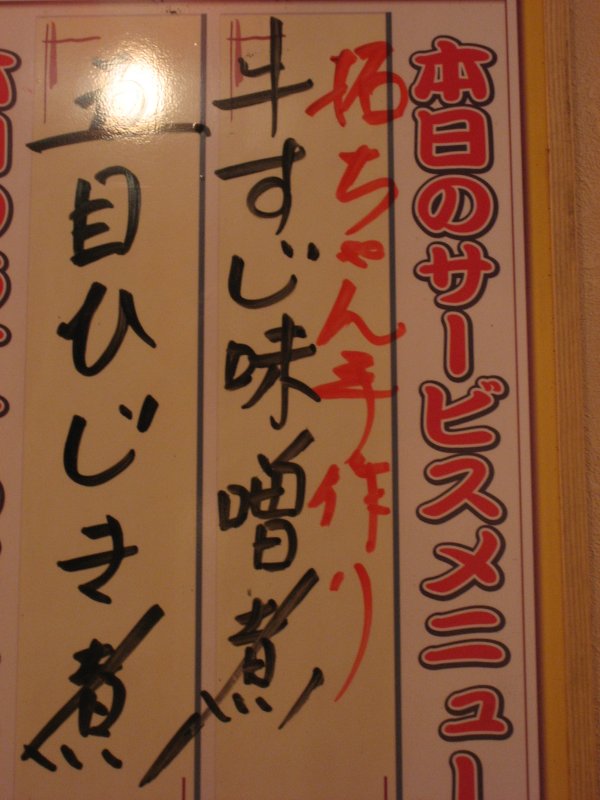 本日のサービスメニュー
拓ちゃん手作り
牛すじ味噌煮
五目ひじき煮